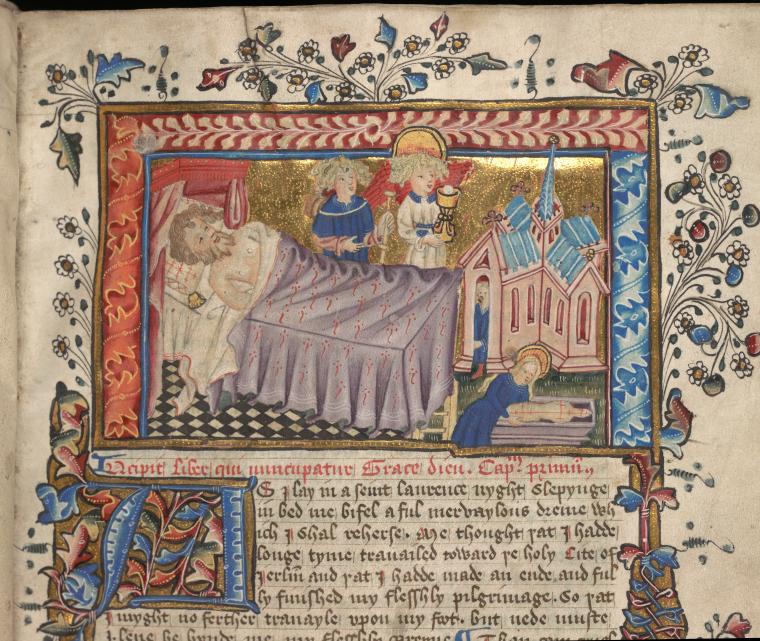 Incipit liber qui nuncupatur Grace dieu. Capm primū.,
AS I lay in a seint laurence nyght Slepynge
in bed me bifel a ful mervaylous dreme wh
ich I shal reherse. Me thought þat I hadde
longe tyme travailed toward þe holy Cite of
Jerlm̄ and þat I hadde made an ende and ful
ly finished my flesshly pilgrimage. So þat
I myght no ferther travayle vpon my foot. but nede muste
I leue be hynde me my flesshly